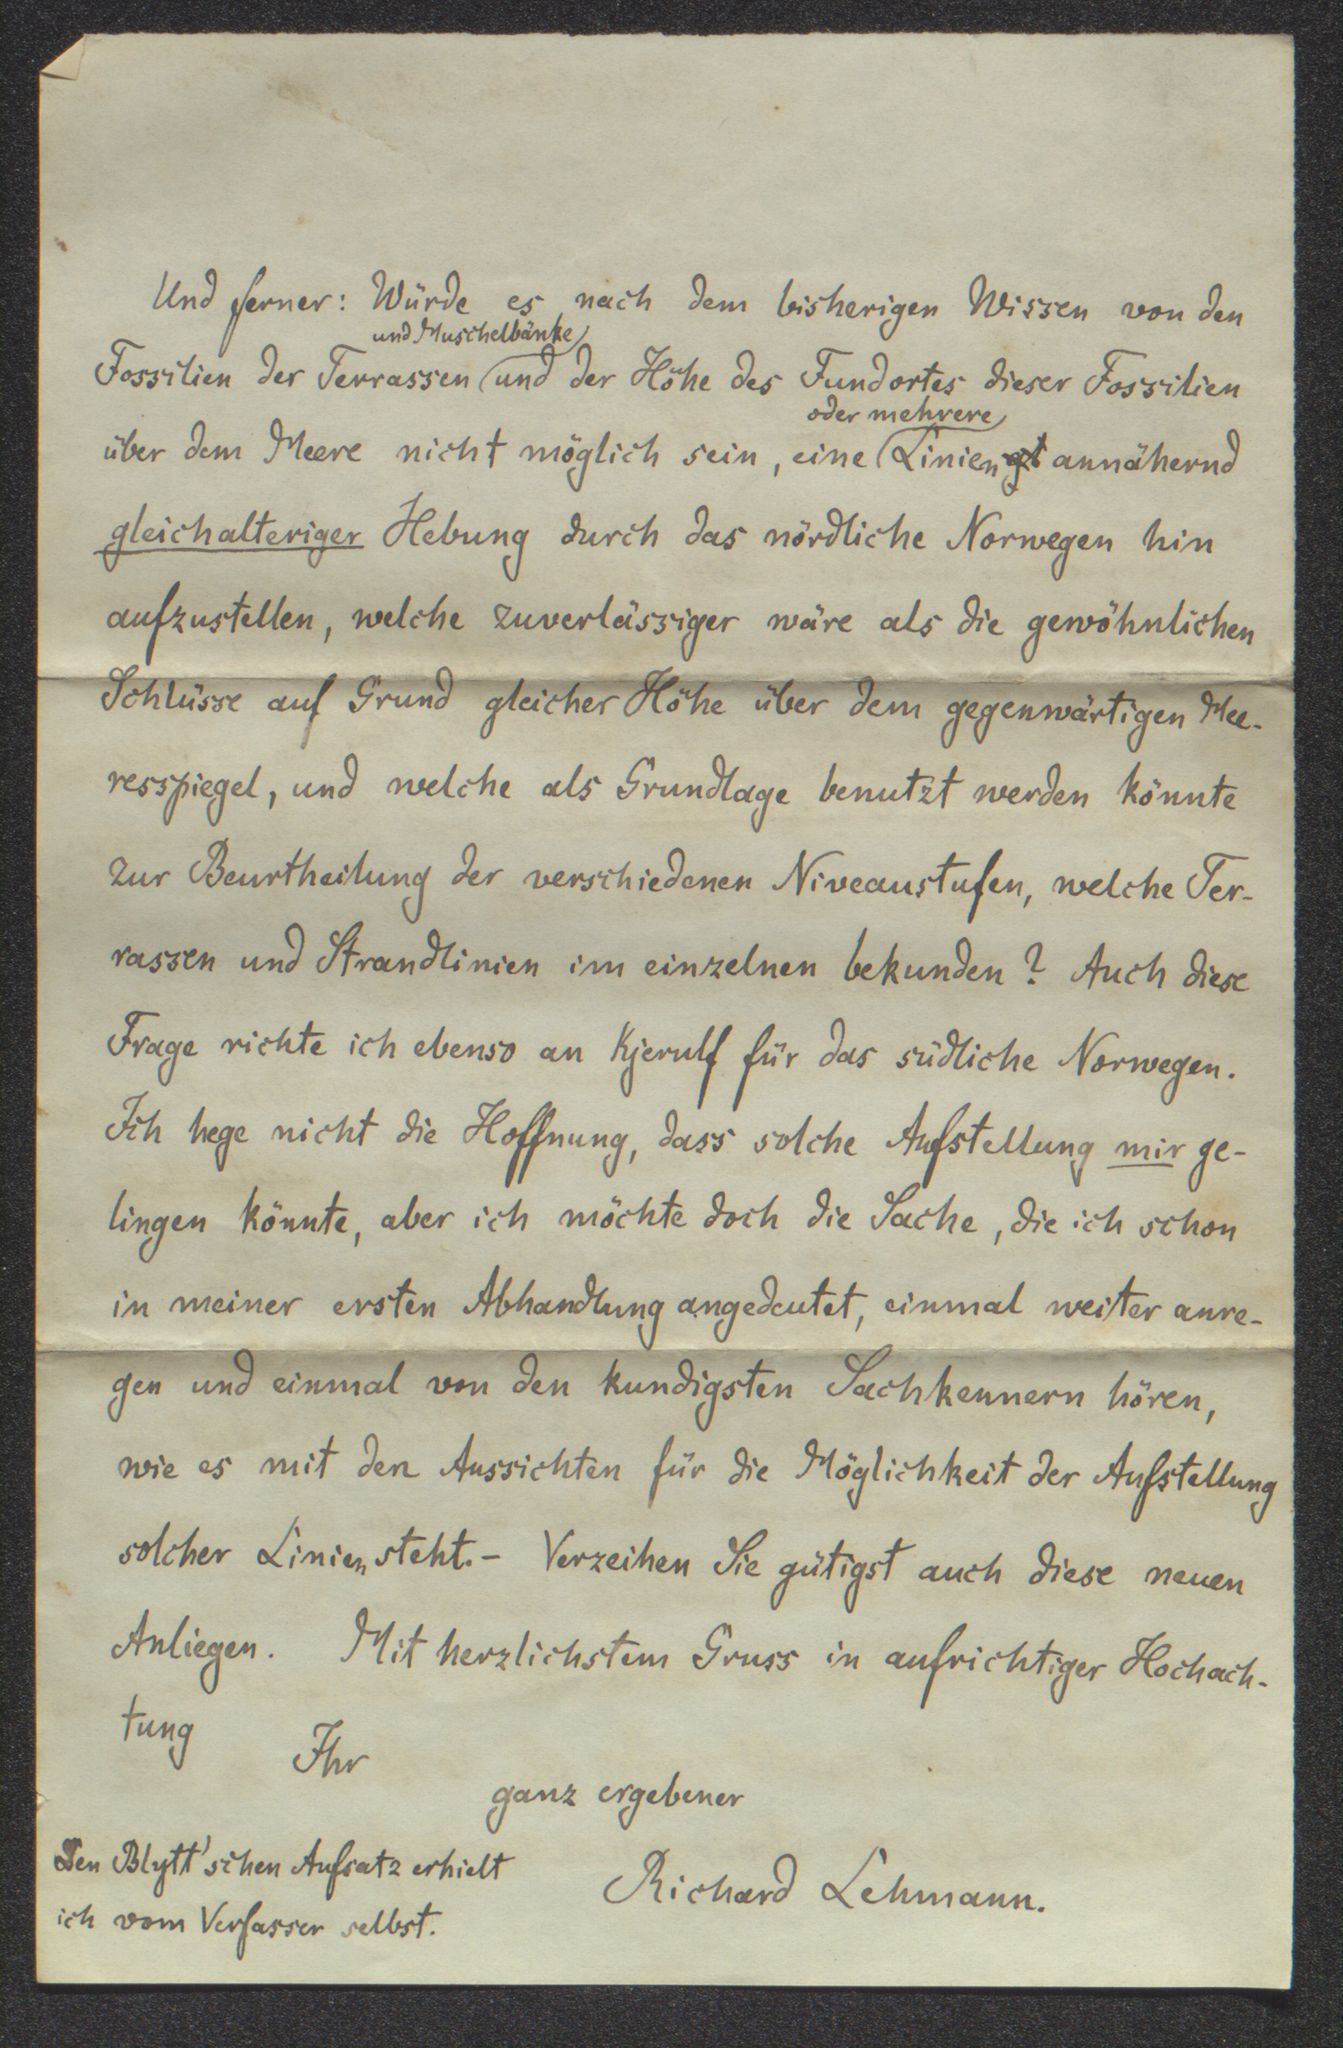 Und ferner: Würde es nach dem bisherigen Wissen von den
und Muschelbänke
Fossilien der Terrassen und der Höhe des Fundortes dieser Fossilien
oder mehrere
über dem Meere nicht möglich sein, eine Linien annähernd
gleichalteriger Hebung durch das nördliche Norwegen hin
aufzustellen, welche zuverlässiger wäre als die gewöhnlichen
Schlüsse auf Grund gleicher Höhe über dem gegenwärtigen Mee-
resspiegel, und welche als Grundlage benutzt werden könnte
zur Beurtheilung der verschiedenen Niveaustufen, welche Ter-
rassen und Strandlinien im einzelnen bekunden? Auch diese
Frage richte ich ebenso an Kjerulf für das südliche Norwegen.
Ich hege nicht die Hoffnung, dass solche Aufstellung mir ge-
lingen könnte, aber ich möchte doch die Sache, die ich schon
in meiner ersten Abhandlung angedeutet, einmal weiter anre-
gen und einmal von den kundigsten Sachkennern hören,
wie es mit den Aussichten für die Möglichkeit der Aufstellung
solcher Linien steht. – Verzeihen Sie gütigst auch diese neuen
Anliegen. Mit herzlichstem Gruss in aufrichtiger Hochach-
tung
Ihr
ganz ergebener
Richard Lehmann.
Den Blytt'schen Aufsatz erhielt
ich vom Verfasser selbst.